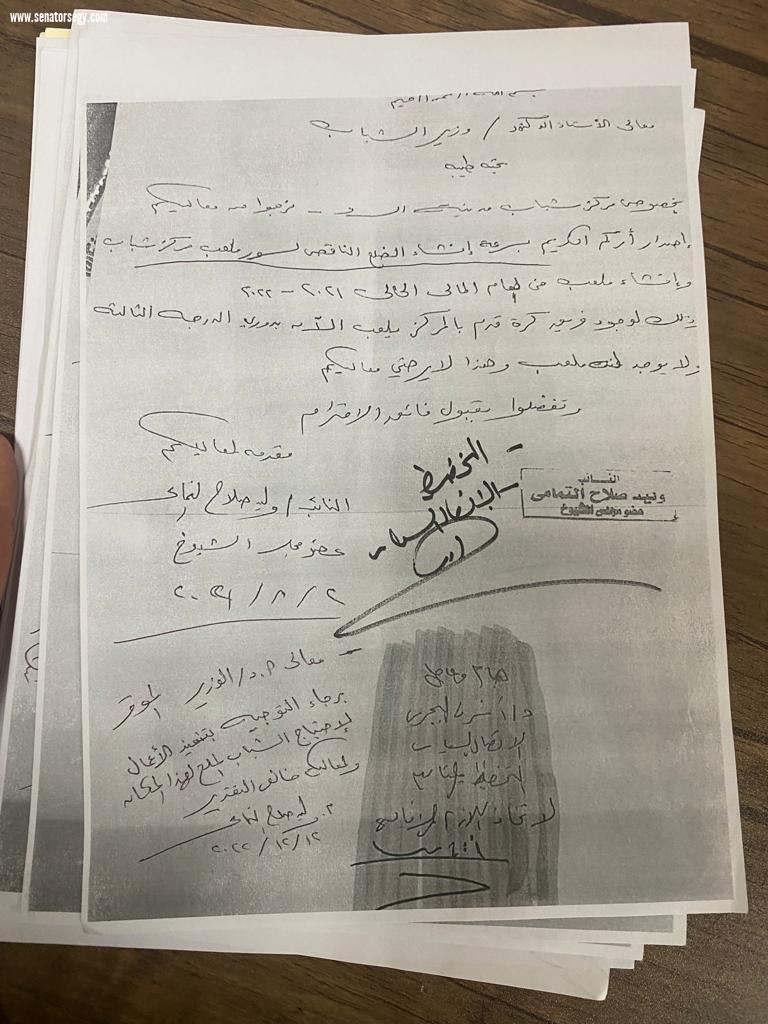 www.senatorsegy.com
معالى الأستاذ الدكتور / وزير الشباب
تحية طيبه
بخصوص مركز شباب مدينة السرو - نرجوا من معاليكم
إصدار أمركم الكريم بسرعه إنشاء الضلع الناقص لسور ملعب مركز شباب
وإنشاء ملعب من العام المالى الحالى ٢٠٢١ - ٢٠٢٢
وذلك لوجود فريق كرة قدم بالمركز يلعب الآن بدورى الدرجه الثالثه
ولا يوجد ملعب وهذا لا يرضي معاليكم
وتفضلوا بقبول فائق الاحترام
مقدمه لمعاليكم
النائب / وليد صلاح التمامى
عضو مجلس الشيوخ
٢ / ٨ / ٢٠٢١
النائب
وليد صلاح التمامى
عضو مجلس الشيوخ
التخطيط
معالى أ.د/ الوزير الموقر
برجاء التوجيه بتنفيذ الأعمال
لاحتياج الشباب الملح لهذا المكان
ولمعاليكم خالص التقدير
وليد صلاح التمامى
١٢ / ١٢ / ٢٠٢٢
لاتخاذ اللازم